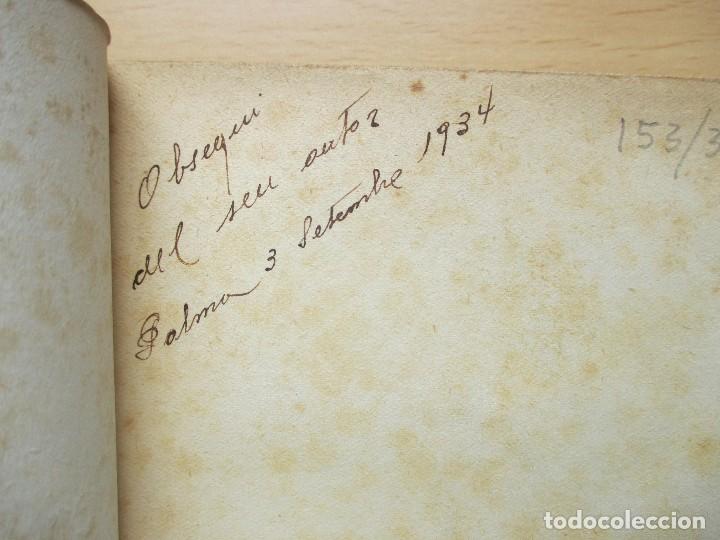 Obsequi
del seu autor
Palma 3 Setembre 1934
153/3
todocoleccion.net